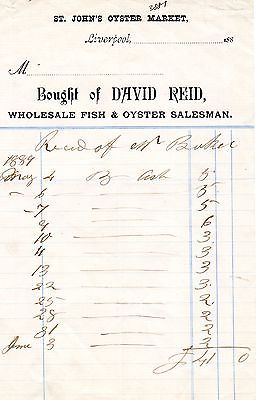 ST. JOHN'S OYSTER MARKET,
Liverpool, 188
M
Bought of DAVID REID,
WHOLESALE FISH & OYSTER SALESMAN.
Recd of Mr Baker
1889
May 4 By Cash 5
" 6 " 3
" 7 5
9 6
10 3
11 3
13 3
22 3
25 2
28 2
31 2
June 3 3
£ 41 0